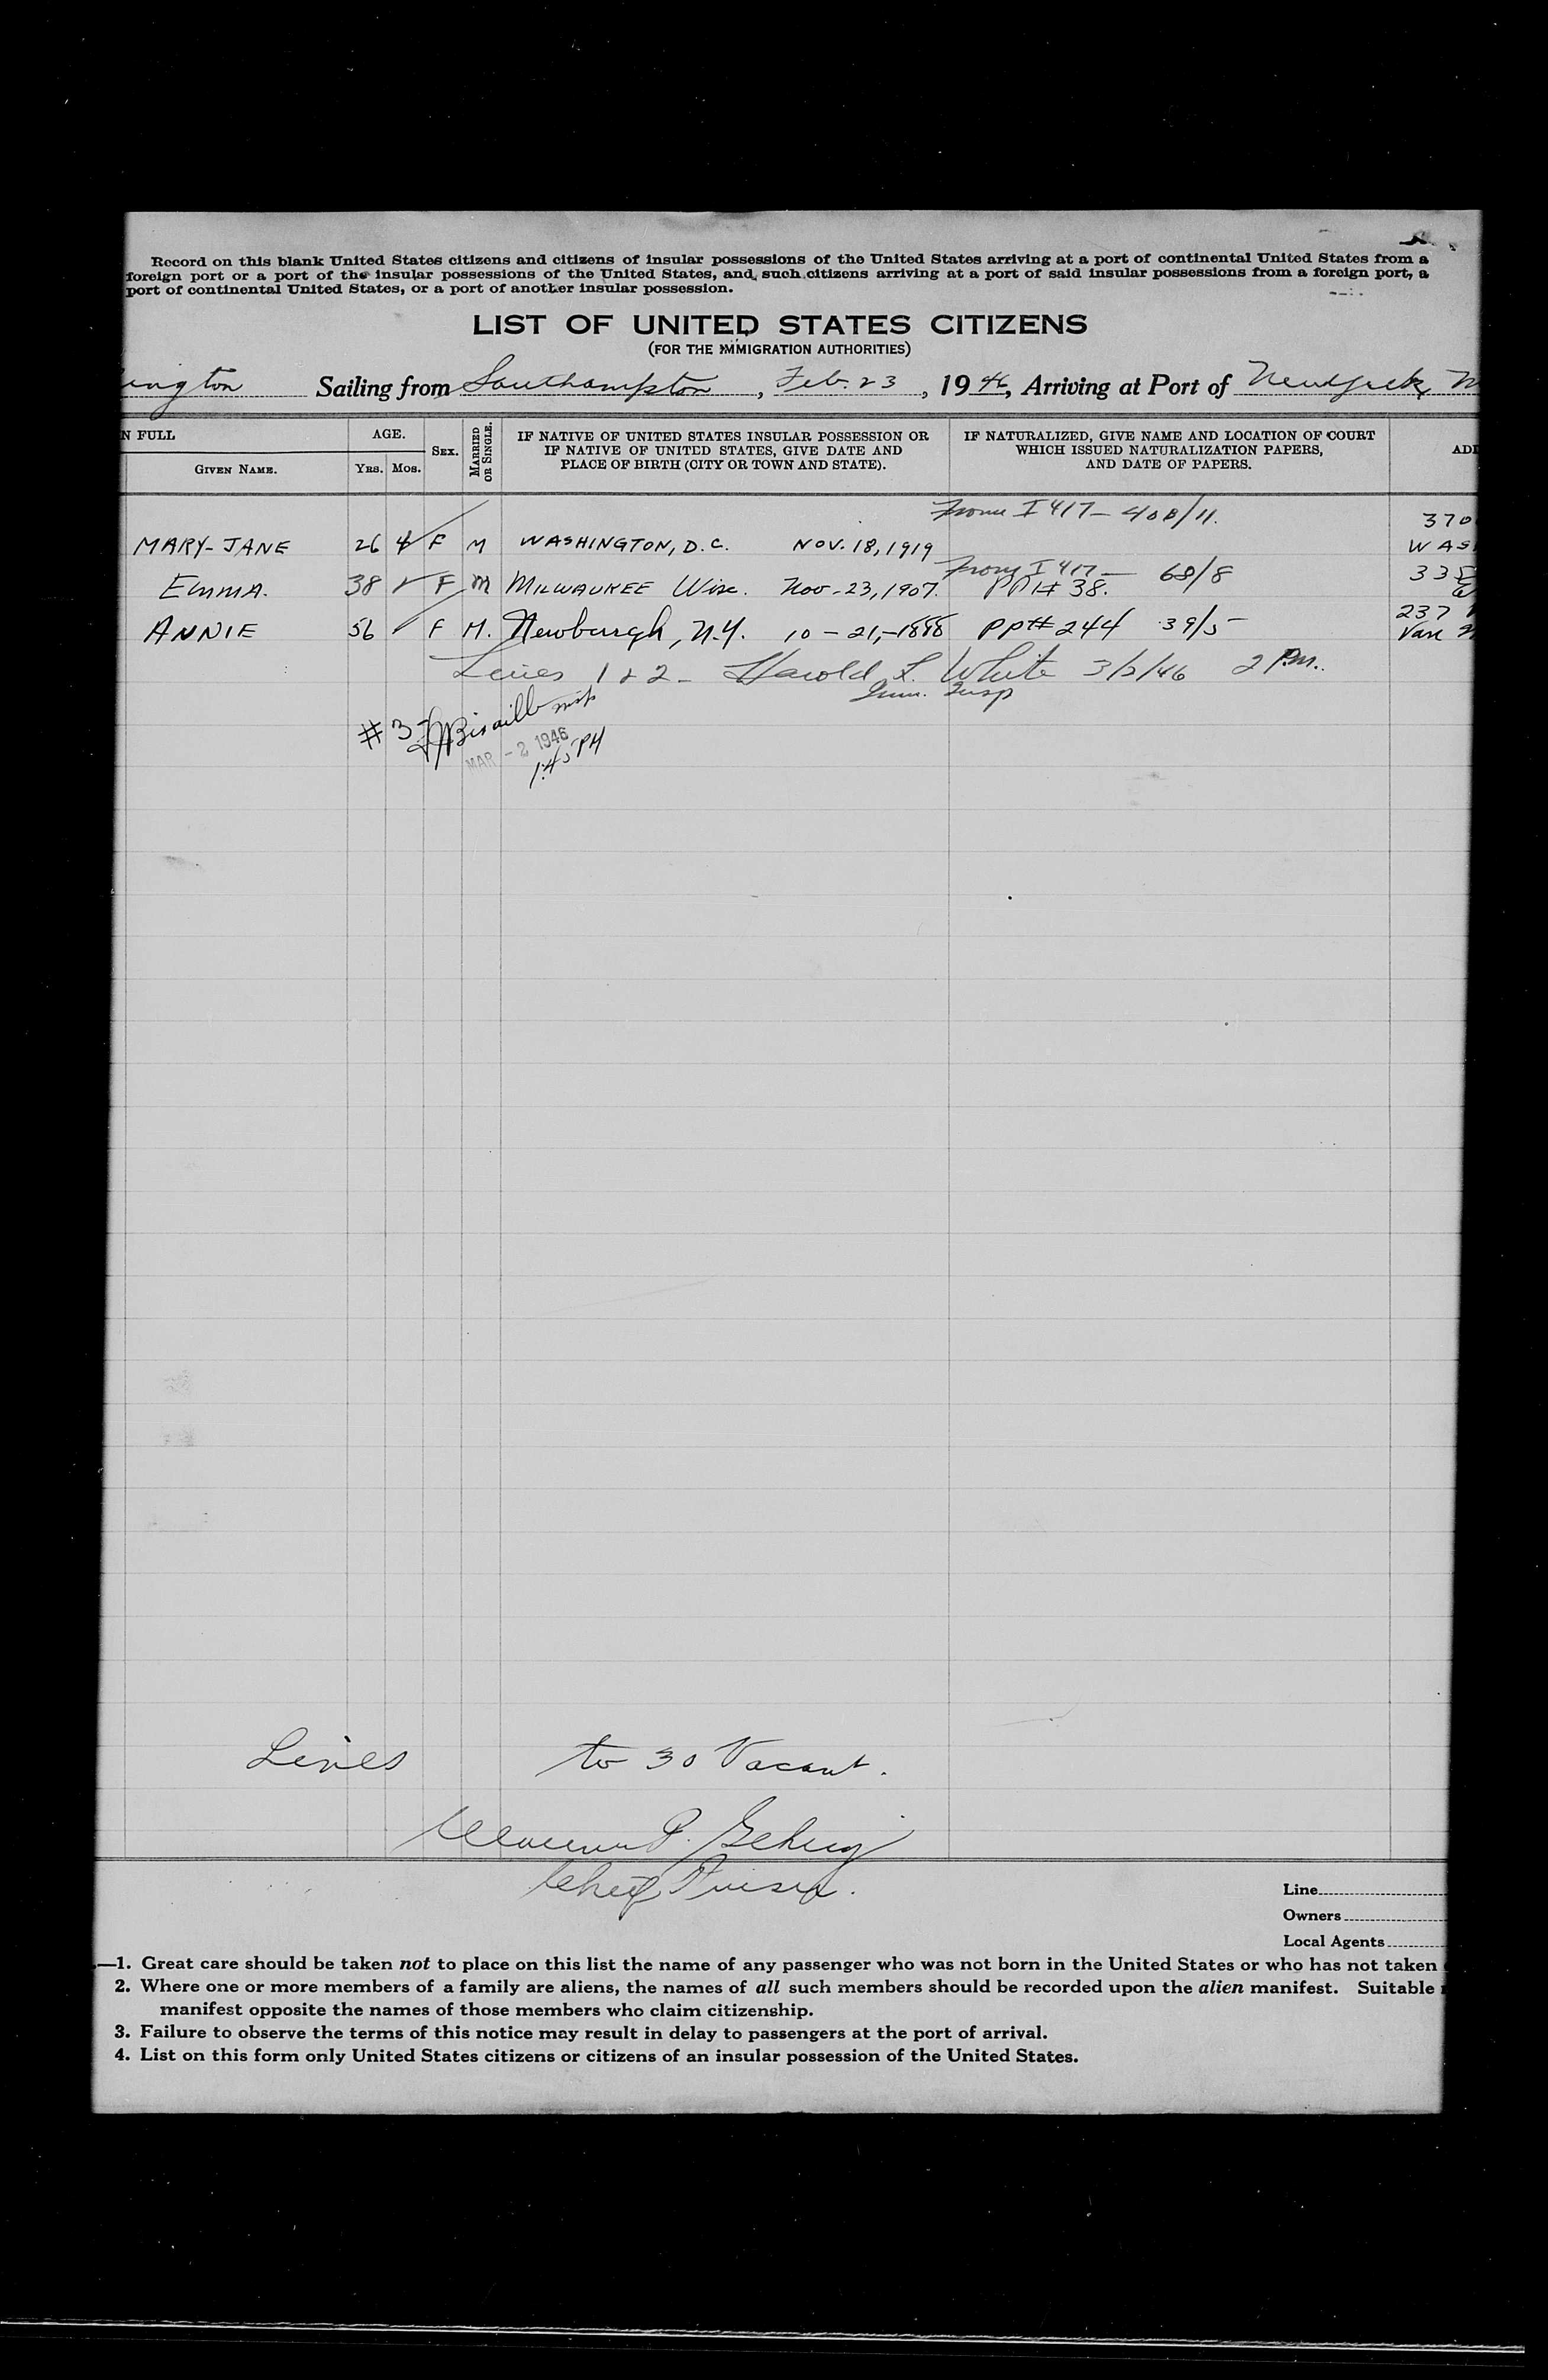 Record on this blank United States citizens and citizens of insular possessions of the United States arriving at a port of continental United States from a
foreign port or a port of the insular possessions of the United States, and such citizens arriving at a port of said insular possessions from a foreign port, a
port of continental United States, or a port of another insular possession.
LIST OF UNITED STATES CITIZENS
(FOR THE IMMIGRATION AUTHORITIES)
ington Sailing from Southampton, Feb. 23, 1946, Arriving at Port of New York
N FULL AGE. SEX. MARRIED OR SINGLE. IF NATIVE OF UNITED STATES INSULAR POSSESSION OR IF NATIVE OF UNITED STATES, GIVE DATE AND PLACE OF BIRTH (CITY OR TOWN AND STATE). IF NATURALIZED, GIVE NAME AND LOCATION OF COURT WHICH ISSUED NATURALIZATION PAPERS, AND DATE OF PAPERS. ADD
GIVEN NAME. YRS. MOS.
From I 417- 408/11. 370
MARY-JANE 26 F M WASHINGTON, D.C. NOV. 18, 1919 WAS
From I 417- 68/8 335
EMMA. 38 F M MILWAUKEE Wisc. Nov-23, 1907. PP# 38.
237
ANNIE 56 F M. Newburgh, N.Y. 10-21,-1888 PP# 244 39/5 Van
Lines 1 & 2 - Harold L. White 3/2/46 2 P.M.
Imm. Insp
#3
MAR - 2 1946
1:45 PM
Lines to 30 Vacant.
P. Gehrig
Chief Purser.
Line
Owners
Local Agents
—1. Great care should be taken not to place on this list the name of any passenger who was not born in the United States or who has not taken
2. Where one or more members of a family are aliens, the names of all such members should be recorded upon the alien manifest. Suitable
manifest opposite the names of those members who claim citizenship.
3. Failure to observe the terms of this notice may result in delay to passengers at the port of arrival.
4. List on this form only United States citizens or citizens of an insular possession of the United States.